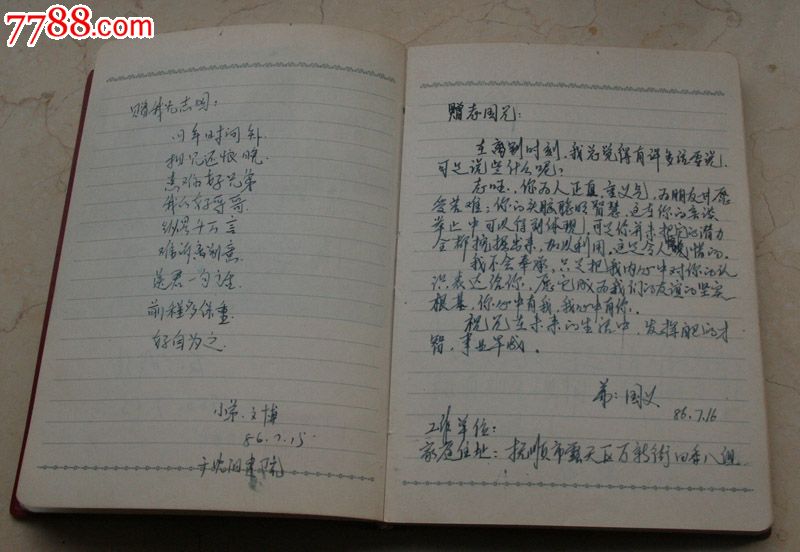 7788.com
赠我兄志国：
四年时间处
相见还恨晚
志国好兄弟
我的好哥哥
纵横千万言
难诉离别意
送君一首诗
前程多保重
好自为之
小弟：文博
86.7.15
于沈阳
赠志国兄：
在离别时刻，我总觉得有许多话要说，
可是说些什么呢？
志国，你为人正直重义气，为朋友甘愿
受苦难；你的头脑聪明智慧，这在你的言谈
举止中可以得到体现，可是你并未把它的潜力
全部挖掘出来，加以利用，这是令人惋惜的。
我不会奉承，只是把我内心中对你的认
识表达给你，愿它成为我们的友谊的坚实
根基，你心中有我，我心中有你。
祝兄在未来的生活中，发挥自己的才
智，事业早成。
弟：国义
86.7.16
工作单位：
家庭住址：抚顺市露天区万新街四委八组